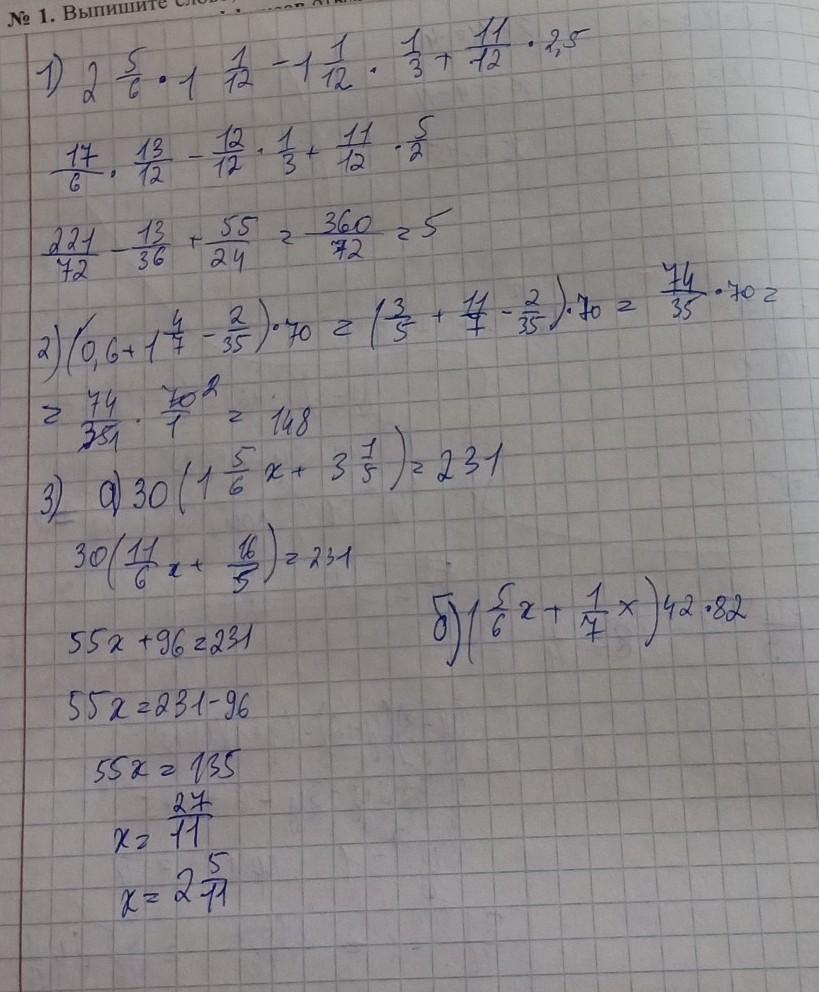 № 1. Выпишите
1) 2 5/6 · 1 1/12 - 1 1/12 · 1/3 + 11/12 · 2,5
17/6 · 13/12 - 12/12 · 1/3 + 11/12 · 5/2
221/72 - 13/36 + 55/24 = 360/72 = 5
2) (0,6 + 1 4/7 - 2/35) · 70 = (3/5 + 11/7 - 2/35) · 70 = 74/35 · 70 =
= 74/35 1 · 70 2/1 = 148
3) а) 30 (1 5/6 x + 3 1/5) = 231
30 (11/6 x + 16/5) = 231
55x + 96 = 231
б) (5/6 x + 1/7 x) 42 · 82
55x = 231 - 96
55x = 135
x = 27/11
x = 2 5/11